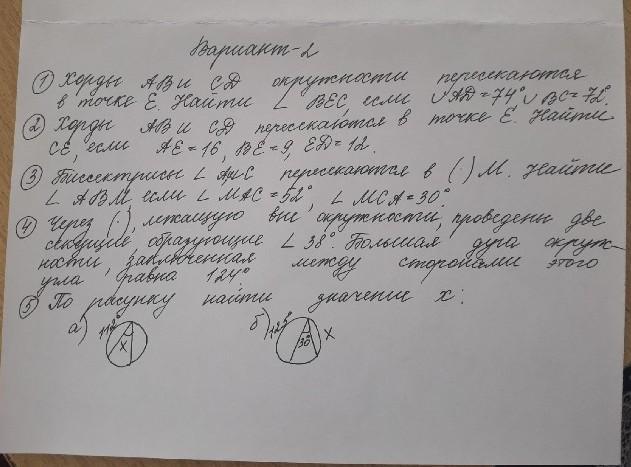 Вариант-2
① Хорды АВ и СД окружности пересекаются
в точке Е. Найти ∠ ВЕС, если ∪АД=74°, ∪ ВС=72°.
② Хорды АВ и СД пересекаются в точке Е. Найти
СЕ, если АЕ=16, ВЕ=9, ЕД=12.
③ Биссектрисы ∠ А и С пересекаются в (·) М. Найти
∠ АВМ, если ∠ МАС=52°, ∠ МСА=30°.
④ Через (·), лежащую вне окружности, проведены две
секущие, образующие ∠ 38°. Большая дуга окруж-
ности, заключенная между сторонами этого
угла равна 124°
⑤ По рисунку найти значение х:
а) 112° х
б) 30° х